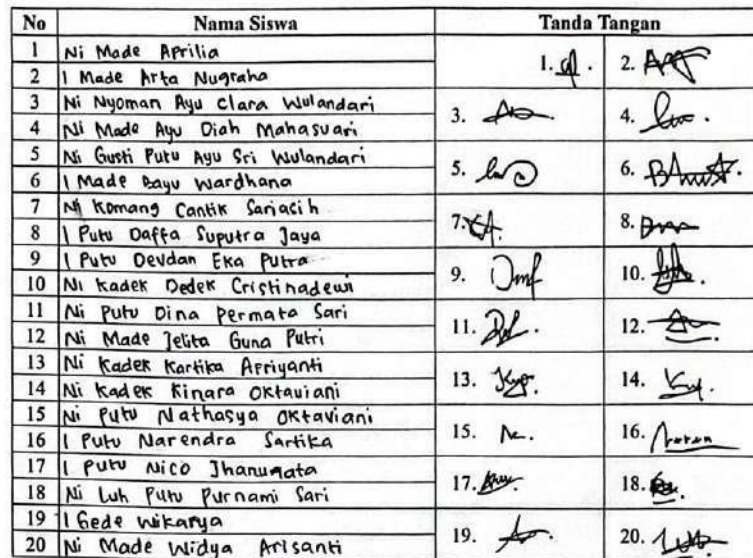 No Nama Siswa Tanda Tangan
1 Ni Made Aprilia 1. 2.
2 I Made Arta Nugraha
3 Ni Nyoman Ayu Clara Wulandari 3. 4.
4 Ni Made Ayu Diah Mahasuari
5 Ni Gusti Putu Ayu Sri Wulandari 5. 6.
6 I Made Bayu Wardhana
7 Ni Komang Cantik Sariasih 7. 8.
8 I Putu Daffa Suputra Jaya
9 I Putu Devdan Eka Putra 9. 10.
10 Ni Kadek Dedek Cristinadewi
11 Ni Putu Dina Permata Sari 11. 12.
12 Ni Made Jelita Guna Putri
13 Ni Kadek Kartika Apriyanti 13. 14.
14 Ni Kadek Kinara Oktaviani
15 Ni Putu Nathasya Oktaviani 15. 16.
16 I Putu Narendra Sartika
17 I Putu Nico 17. 18.
18 Ni Luh Putu Purnami Sari
19 I Gede Wikarya 19. 20.
20 Ni Made Widya Arisanti